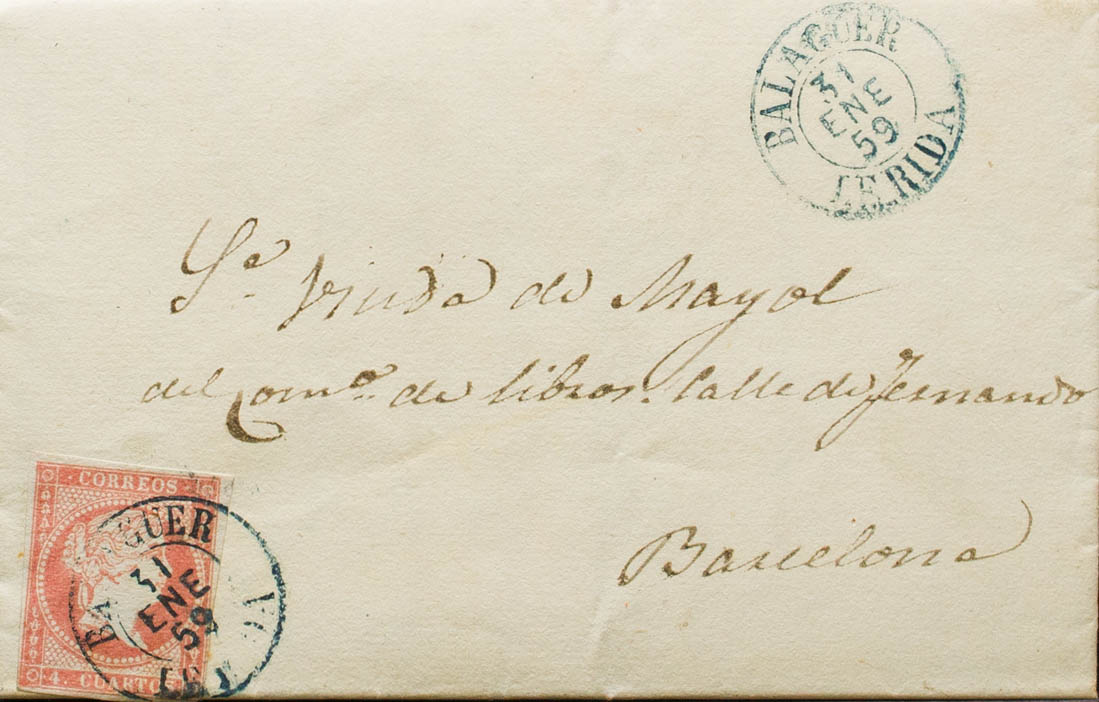 BALAGUER
31
ENE
59
LERIDA
Sª. Viuda de Mayol
del Comº. de libros. Calle de Fernando
Barcelona
CORREOS
BALAGUER
31
ENE
59
LERIDA
4. CUARTOS